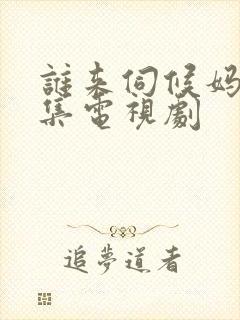 誰来伺候妈
集電視劇
追夢道者